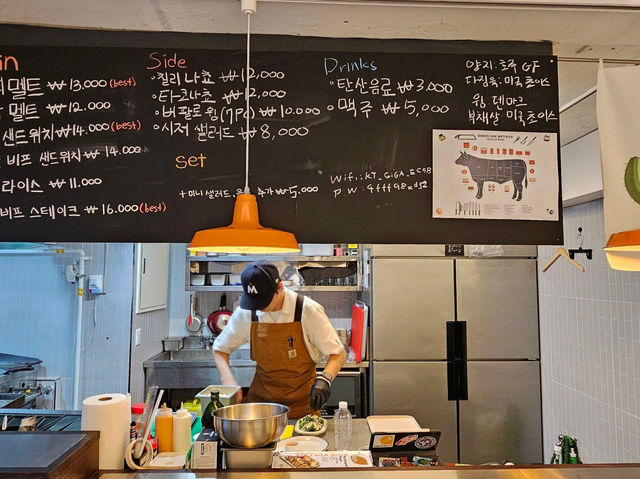 in
멜트 ₩13.000 (best)
멜트 ₩12.000
샌드위치 ₩14.000 (best)
비프 샌드위치 ₩14.000
라이스 ₩11.000
비프 스테이크 ₩16.000 (best)
Side
칠리나쵸 ₩12,000
타코나쵸 ₩12,000
버팔로윙(7Pc) ₩10.000
시저 샐러드 ₩8,000
set
+ 미니 샐러드, 추가 ₩5.000
Drinks
탄산음료 ₩3.000
맥주 ₩5,000
Wifi: KT_GiGA_
PW:
양지: 호주 GF
다짐육: 미국 초이스
윙 덴마크
부채살 미국 초이스
AMERICAN METHOD
M